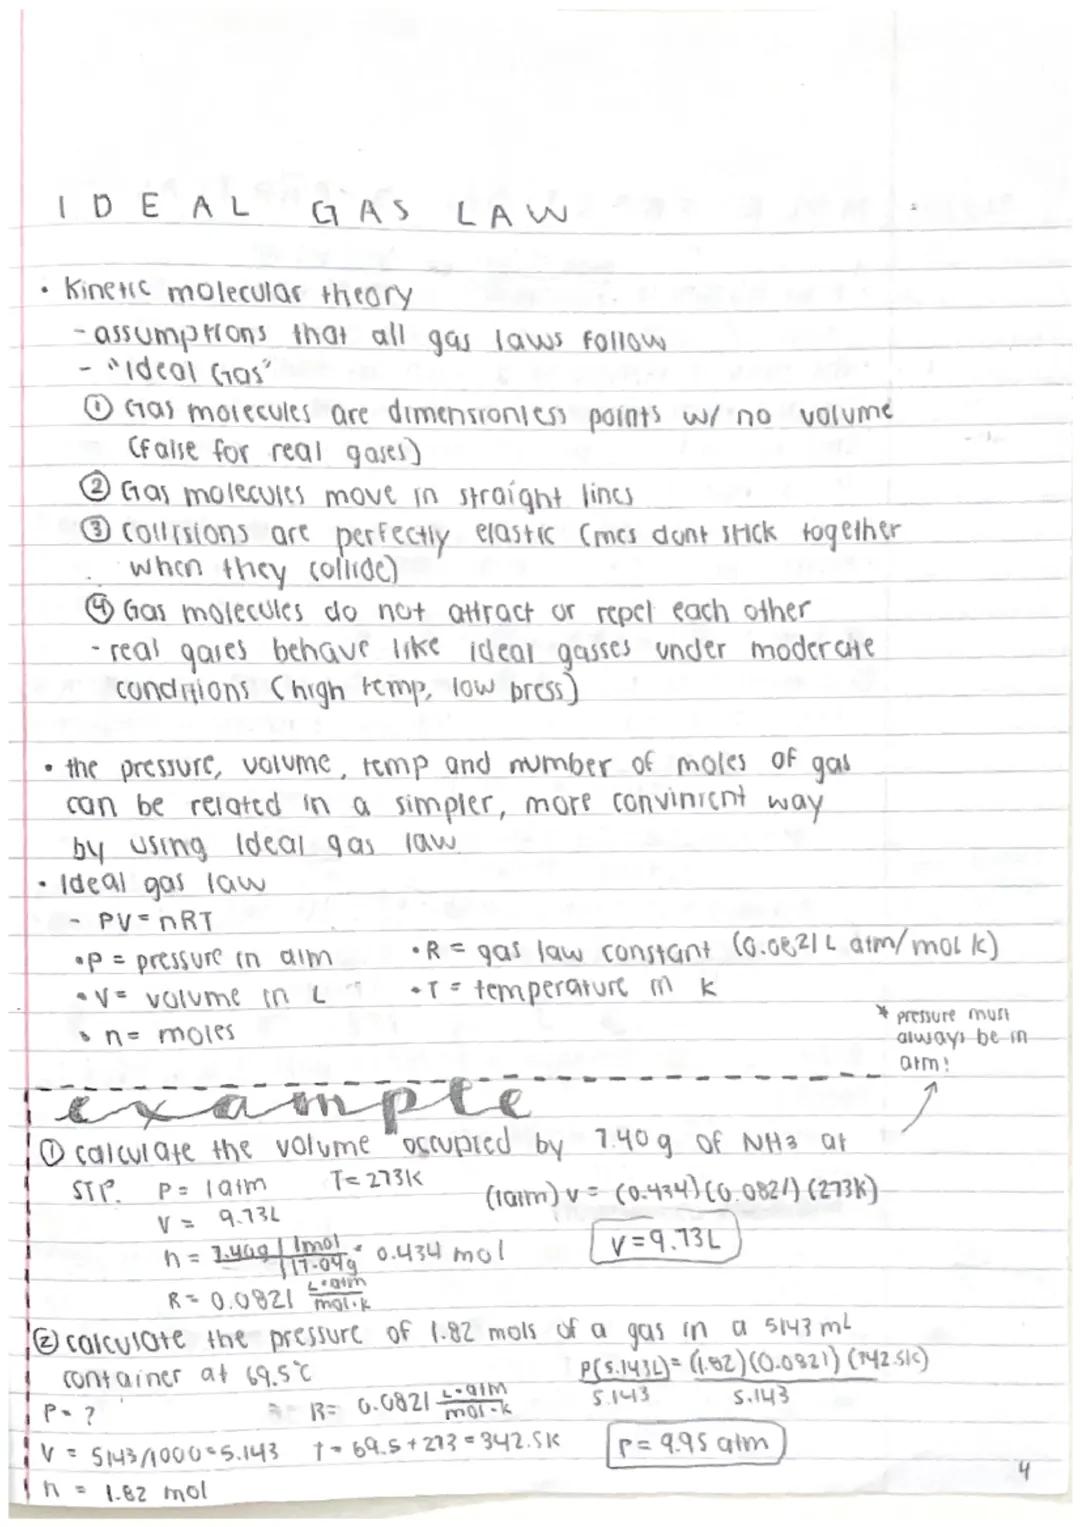 IDEAL GAS LAW
• Kinetic molecular theory
- assumptions that all gas laws follow
- "Ideal Gas"
① Gas molecules are dimensionless points w/ no volume
(false for real gases)
② Gas molecules move in straight lines
③ collisions are perfectly elastic (mcs dont stick together
when they collide)
④ Gas molecules do not attract or repel each other
- real gases behave like ideal gasses under moderate
conditions (high temp, low press)
• the pressure, volume, temp and number of moles of gas
can be related in a simpler, more convinient way
by using Ideal gas law
• Ideal gas law
- PV = nRT
• P = pressure in atm • R = gas law constant (0.0821 L atm/mol k)
• V = volume in L • T = temperature in k
• n = moles
* pressure must
always be in
atm!
example
① calculate the volume occupied by 7.40g of NH3 at
STP. P = 1atm T = 273K (1atm) V = (0.434)(0.0821)(273K)
V = 9.73L
V = 9.73L
n = 7.40g | 1mol / 17.04g = 0.434 mol
R = 0.0821 L•atm / mol•k
② calculate the pressure of 1.82 mols of a gas in a 5143 mL
container at 69.5°C P(5.143L) = (1.82)(0.0821)(342.5k)
5.143 5.143
P = ? R = 0.0821 L•atm / mol•k
V = 5143/1000 = 5.143 T = 69.5 + 273 = 342.5K P = 9.95 atm
n = 1.82 mol
4